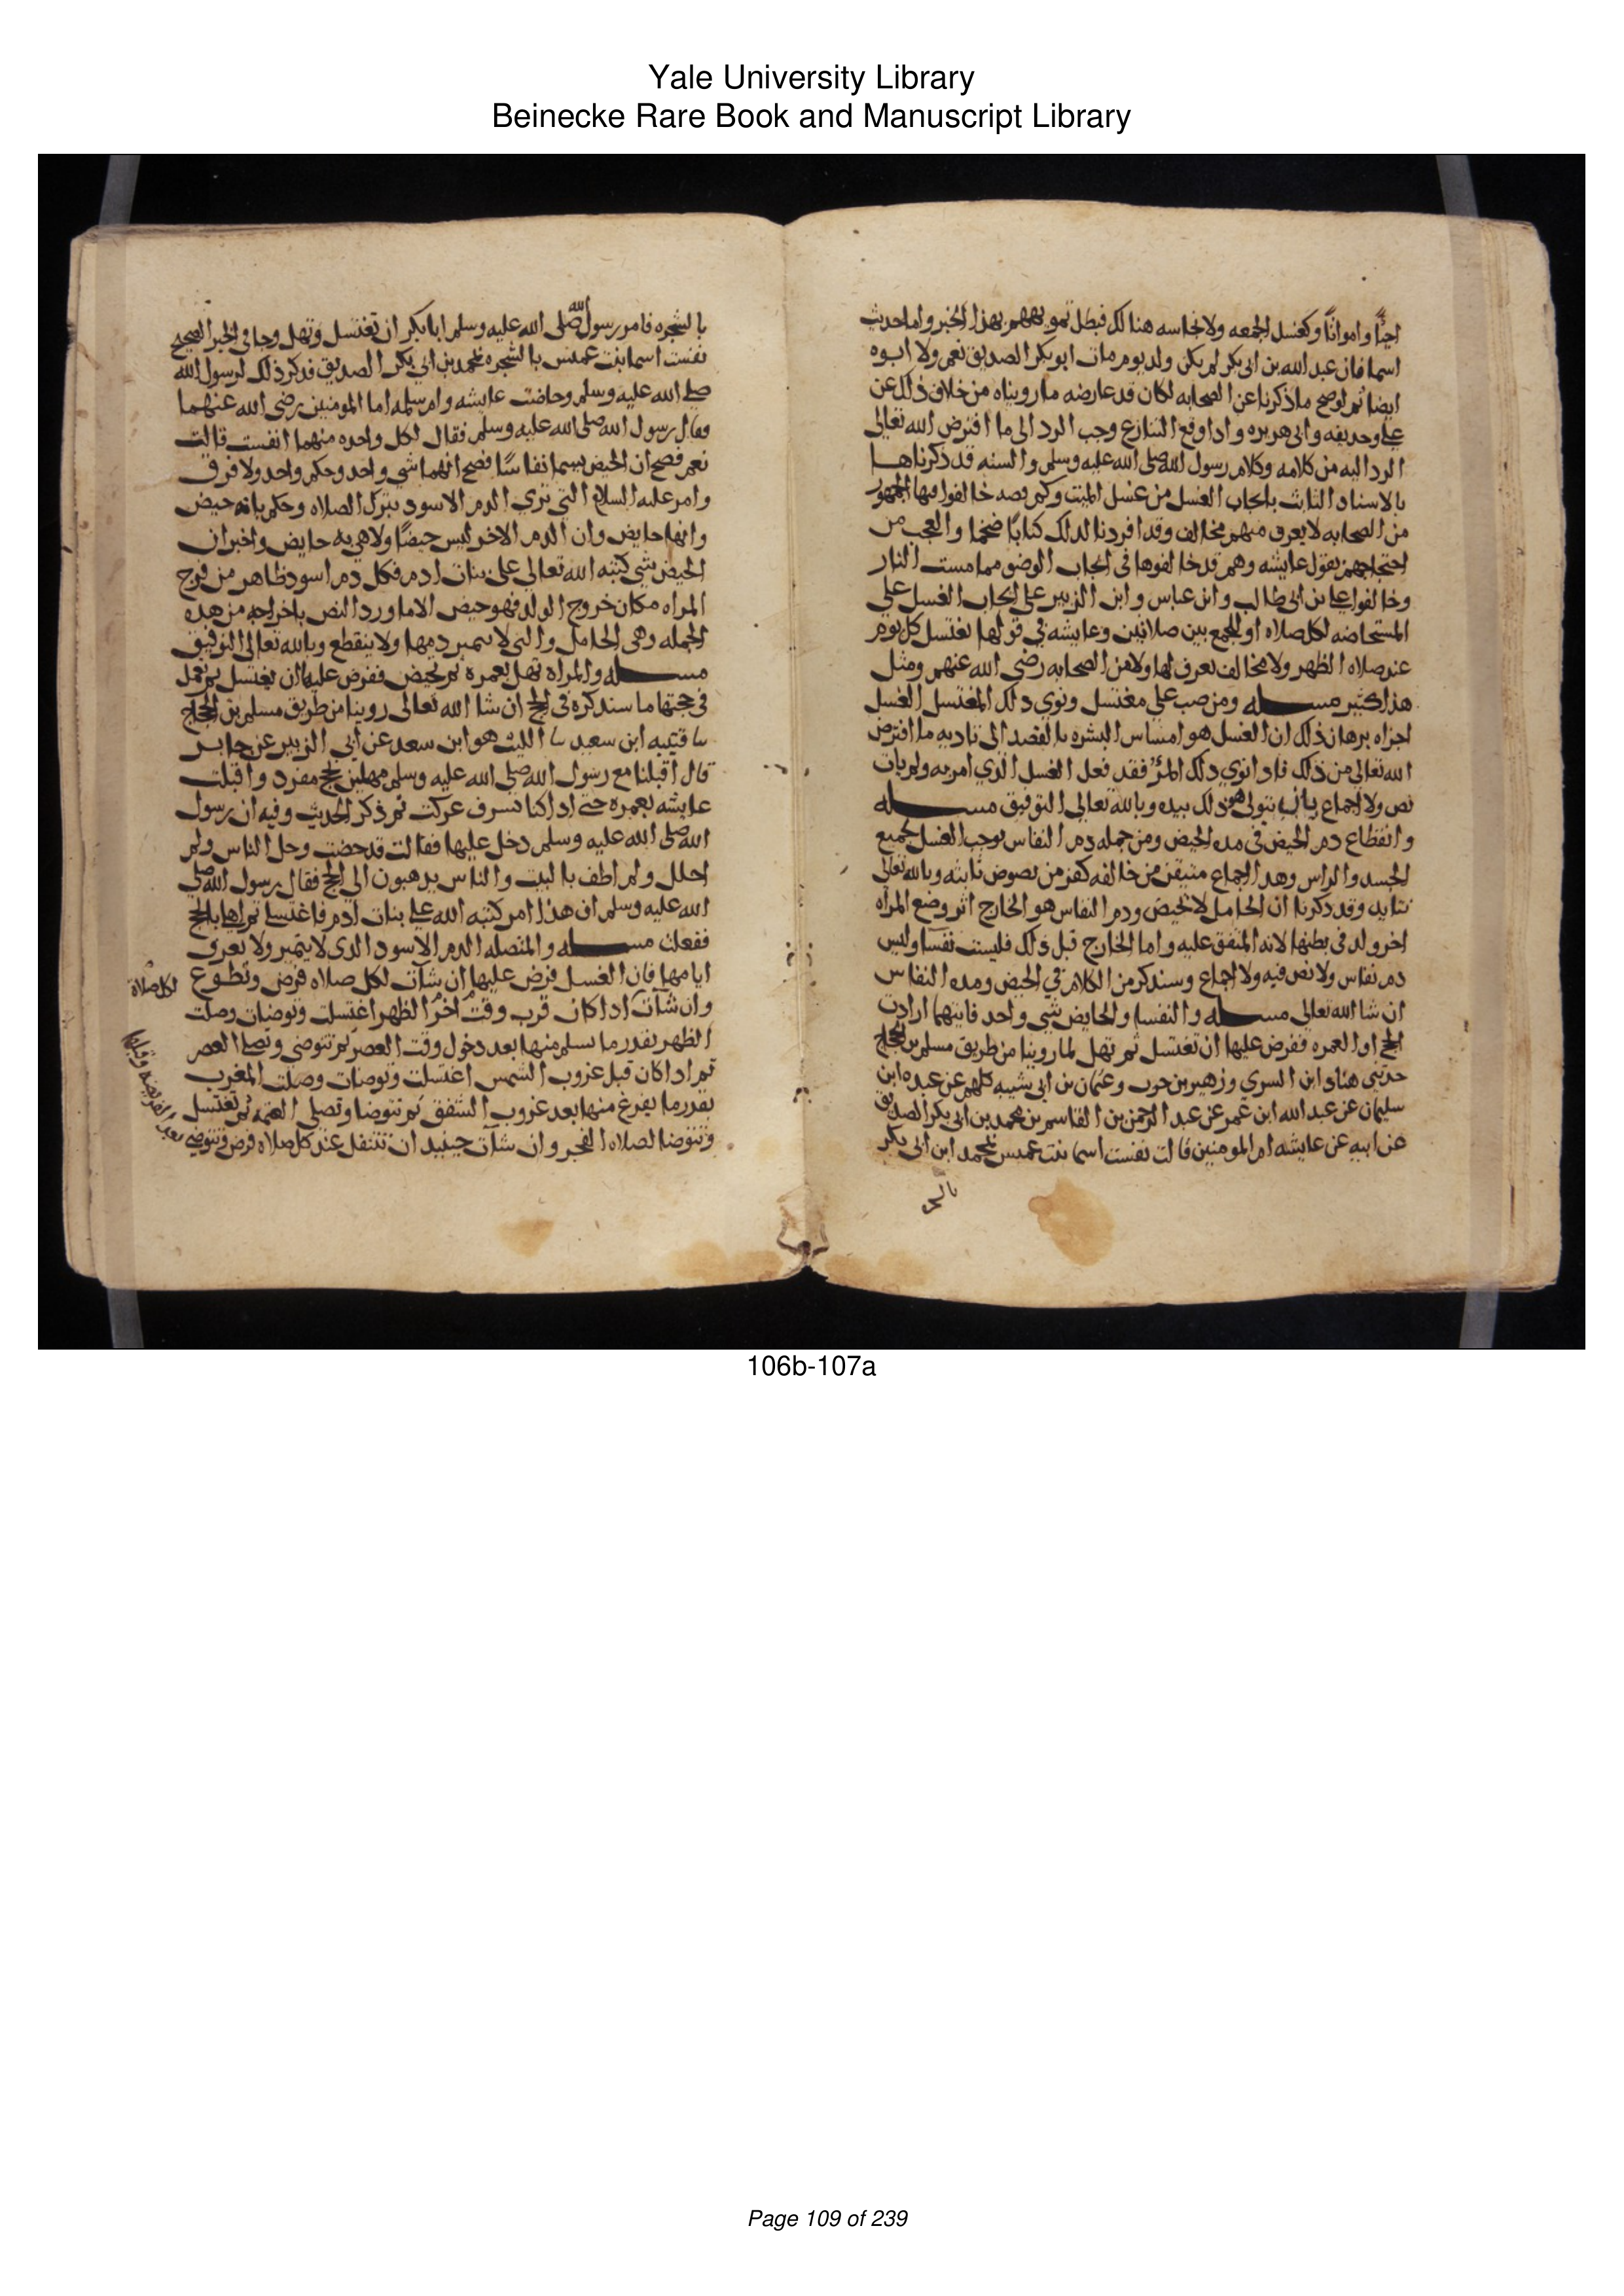 Yale University Library
Beinecke Rare Book and Manuscript Library
احيا وامواتا وكغسل الجمعه ولا نجاسه هنالك فبطل تمويههم بهذا الخبر واما حديث
اسما فان عبد الله بن ابى بكر لم يكن ولد يوم مات ابو بكر الصديق نعم ولا ابوه
ايضا ثم لو صح ما ذكرنا عن الصحابه لكان قد عارضه ما رويناه من خلاف ذلك عن
على وحذيفه وابى هريره واذا وقع التنازع وجب الرد الى ما افترض الله تعالى
الرد اليه من كلامه وكلام رسول الله صلى الله عليه وسلم والسنه قد ذكرناها
بالاسناد الثابت بايجاب الغسل من غسل الميت وكم قصه خالفوا فيها الجمهور
من الصحابه لا يعرف منهم مخالف وقد افردنا لذلك كتابا ضخما والعجب من
احتجاجهم بقول عايشه وهم قد خالفوها فى ايجاب الوضو مما مست النار
وخالفوا على بن ابى طالب وابن عباس وابن الزبير على ايجاب الغسل على
المستحاضه لكل صلاه او للجمع بين صلاتين وعايشه فى قولها تغتسل كل يوم
عند صلاه الظهر ولا مخالف يعرف لها ولا من الصحابه رضى الله عنهم ومثل
هذا كثير مسله ومن صب على مغتسل ونوى ذلك المغتسل الغسل
اجزاه برهان ذلك ان الغسل هو امساس البشره بالقصد الى تاديه ما افترض
الله تعالى من ذلك فاذا نوى ذلك المر فقد فعل الغسل الذي امر به ولم يات
نص ولا اجماع بان يتولى هو ذلك بيده وبالله تعالى التوفيق مسله
وانقطاع دم الحيض فى مده الحيض ومن جمله دم النفاس يوجب الغسل لجميع
الجسد والراس وهذا اجماع متيقن من خالفه كفر من نصوص ثابته وبالله تعالى
نتايد وقد ذكرنا ان الحامل لا تحيض ودم النفاس هو الخارج اثر وضع المراه
اخر ولد فى بطنها لانه المتفق عليه واما الخارج قبل ذلك فليست نفسا وليس
دم نفاس ولا نص فيه ولا اجماع وسنذكر من الكلام في الحيض ومده النفاس
ان شا الله تعالى مسله والنفسا والحايض شي واحد فايتهما ارادت
الحج او العمره ففرض عليها ان تغتسل ثم تهل لما روينا من طريق مسلم بن الحجاج
حدثنى هناد ابن السري وزهير بن حرب وعثمان بن ابى شيبه كلهم عن عبده ابن
سليمان عن عبد الله ابن عمر عن عبد الرحمن بن القاسم بن محمد بن ابى بكر الصديق
عن ابيه عن عايشه ام المومنين قالت نفست اسما بنت عميس بمحمد ابن ابى بكر
بالشجره فامر رسول الله صلى الله عليه وسلم ابا بكر ان تغتسل وتهل وجا فى الخبر الصحيح
نفست اسما بنت عميس بالشجره بمحمد بن ابي بكر الصديق فذكر ذلك لرسول الله
صلى الله عليه وسلم وحاضت عايشه وام سلمه اما المومنين رضى الله عنهما
وقال رسول الله صلى الله عليه وسلم فقال لكل واحده منهما انفست قالت
نعم فصح ان الحيض يسما نفاسا فصح انهما شي واحد وحكم واحد ولا فرق
وامر عليه السلام التى ترى الدم الاسود بترك الصلاه وحكم بانه حيض
وانها حايض وان الدم الاخر ليس حيضا ولا هى به حايض واخبر ان
الحيض شى كتبه الله تعالى على بنات ادم فكل دم اسود ظاهر من فرج
المراه مكان خروج الولد فهو حيض الا ما ورد النص باخراجه من هذه
الجمله وهى الحامل والتى لا يتميز دمها ولا ينقطع وبالله تعالى التوفيق
مسله والمراه تهل بعمره ثم تحيض ففرض عليها ان تغتسل ثم تعمل
فى حجتها ما سنذكره فى الحج ان شا الله تعالى روينا من طريق مسلم بن الحجاج
نا قتيبه ابن سعيد نا الليث هو ابن سعد عن أبى الزبير عن جابر
قال اقبلنا مع رسول الله صلى الله عليه وسلم مهلين بحج مفرد واقبلت
عايشه بعمره حتى اذا كنا بسرف عركت ثم ذكر الحديث وفيه ان رسول
الله صلى الله عليه وسلم دخل عليها فقالت قد حضت وحل الناس ولم
احلل ولم اطف بالبيت والناس يذهبون الى الحج فقال رسول الله صلى
الله عليه وسلم ان هذا امر كتبه الله على بنات ادم فاغتسلى ثم اهلى بالحج
ففعلت مسله والمتصله الدم الاسود الذى لا يتميز ولا تعرف
ايامها فان الغسل فرض عليها ان شات لكل صلاه فرض وتطوع
لكل صلاة
وان شات اذا كان قرب وقت اخر الظهر اغتسلت وتوضات وصلت
الظهر بقدر ما تسلم منها بعد دخول وقت العصر ثم تتوضى وتصلى العصر
ثم اذا كان قبل غروب الشمس اغتسلت وتوضات وصلت المغرب
بقدر ما يفرغ منها بعد غروب الشفق ثم تتوضا وتصلى العتمه ثم تغتسل
وتتوضا لصلاه الفجر وان شات حينيد ان تتنفل عند كل صلاه فرض وتتوضى
بعد الفريضه وقبلها
106b-107a
Page 109 of 239